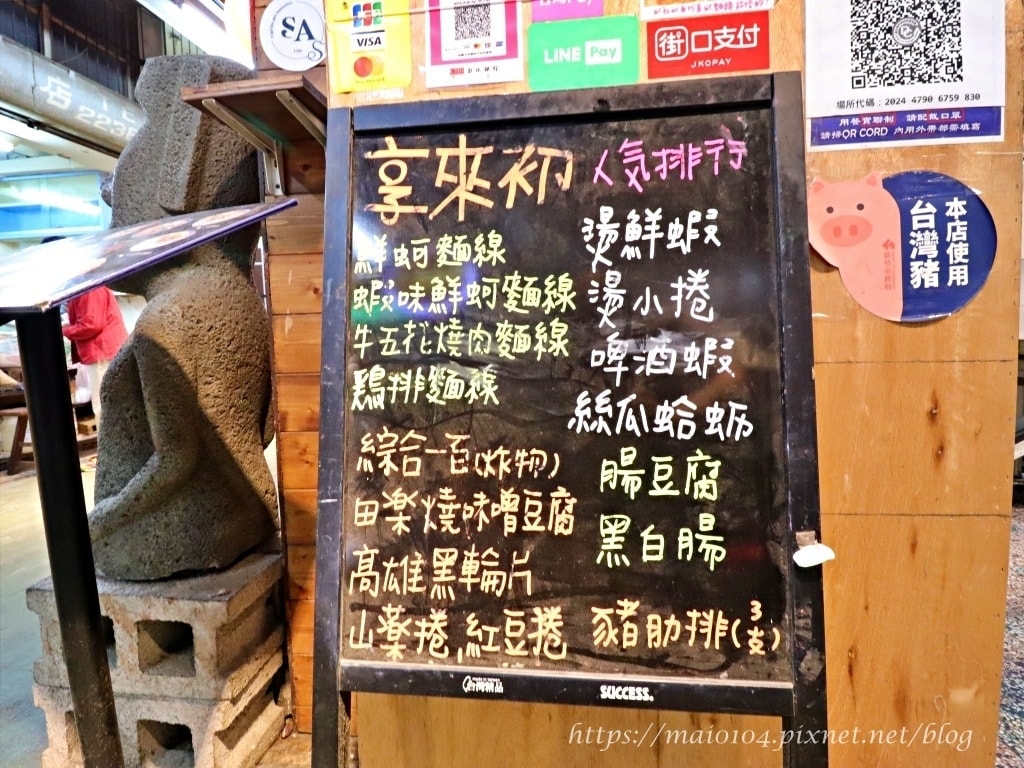 SA
S
JCB
VISA
LINE Pay
街口支付
JKOPAY
場所代碼：2024 4790 6759 830
用餐實聯制 請配戴口罩
請掃QR CORD 內用外帶都需填寫
本店使用
台灣豬
享來初
人気排行
鮮蚵麵線
蝦味鮮蚵麵線
牛五花燒肉麵線
鷄排麵線
綜合一百(炸物)
田楽燒味噌豆腐
高雄黑輪片
山薬捲,紅豆捲
燙鮮蝦
燙小捲
啤酒蝦
絲瓜蛤蛎
腸豆腐
黑白腸
豬肋排(3支)
台灣精品
SUCCESS.
https://mai0104.pixnet.net/blog